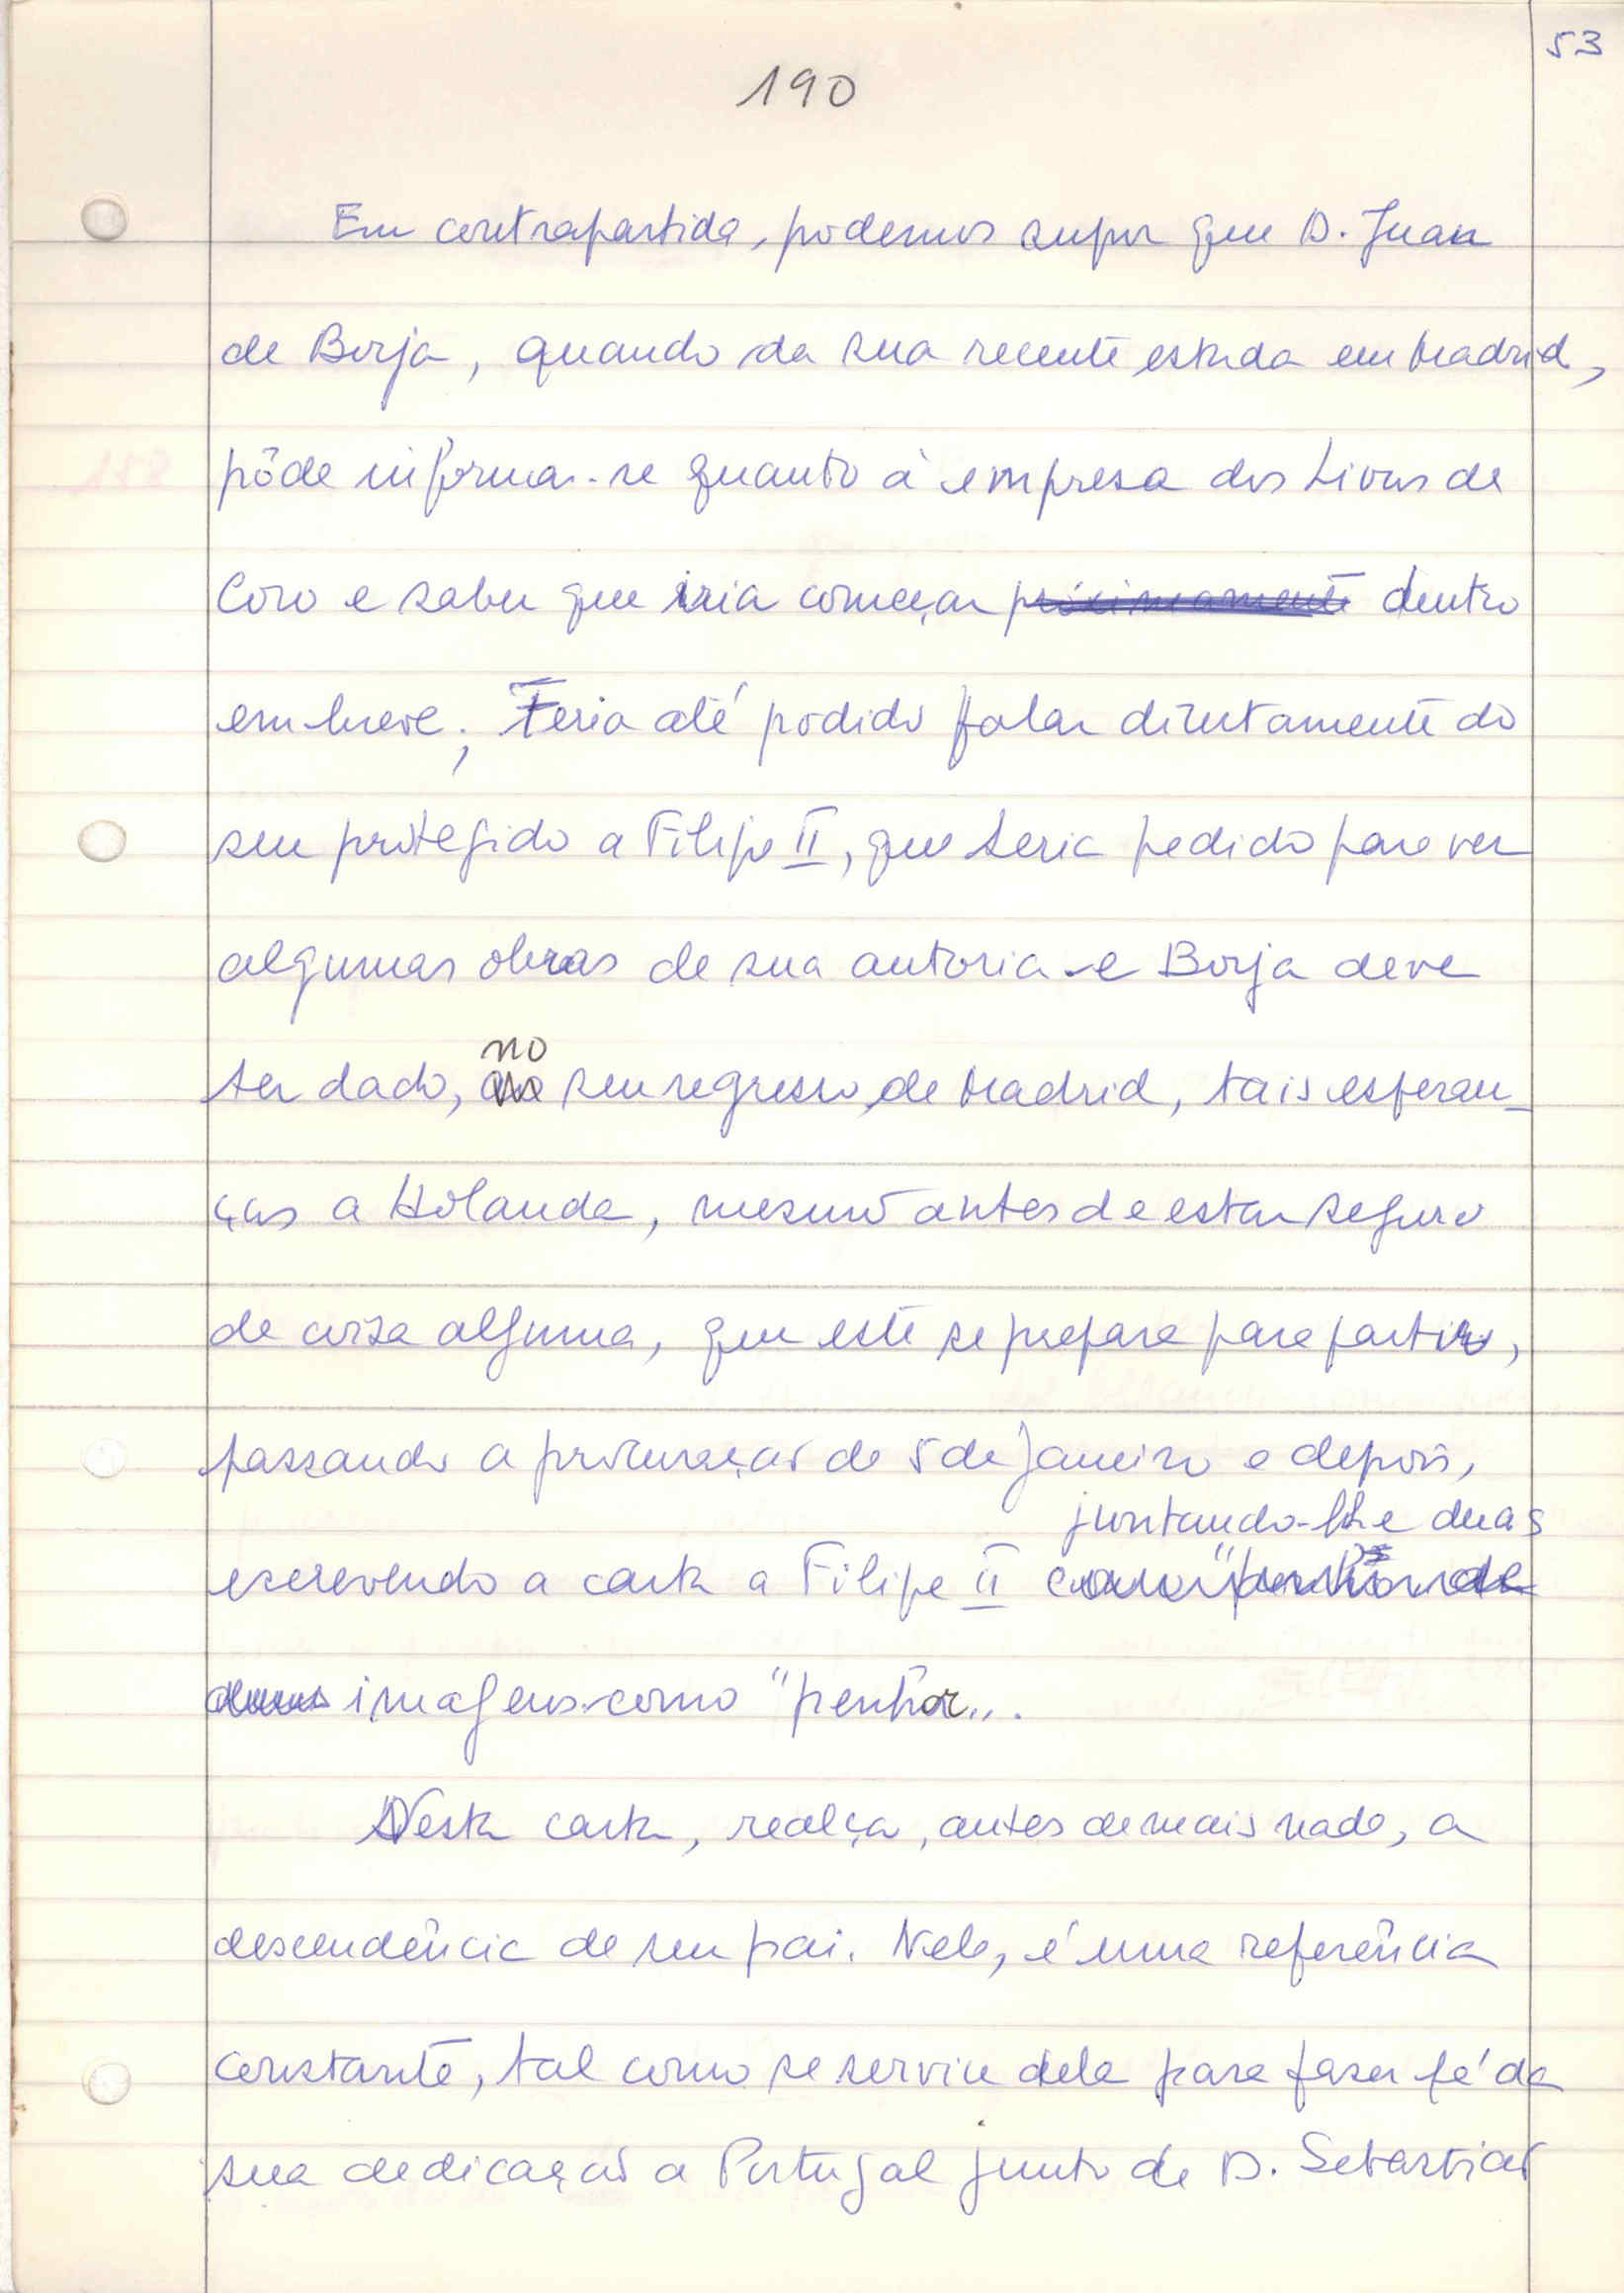 53
190
Em contrapartida, podemos supor que D. Juan
de Borja, quando da sua recente estada em Madrid,
pôde informar-se quanto à empresa dos Livros de
Coro e saber que iria começar proximamente dentro
em breve; Teria até podido falar directamente do
seu protegido a Filipe II, que teria pedido para ver
algumas obras de sua autoria - e Borja deve
no
ter dado, seu regresso, de Madrid, tais esperan-
ças a Holanda, mesmo antes de estar seguro
de coisa alguma, que este se prepara para partir,
passando a procuração de 5 de Janeiro e depois,
juntando-lhe duas
escrevendo a carta a Filipe II com "penhor de
duas imagens como "penhor".
Nesta carta, realça, antes de mais nada, a
descendência de seu pai. Nele, é uma referência
constante, tal como se serviu dele para fazer fé da
sua dedicação a Portugal junto de D. Sebastião